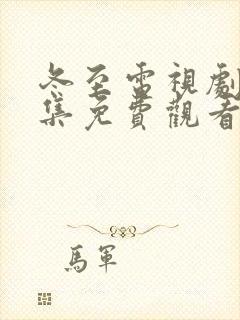 冬至電視劇
集免費觀看
馬軍